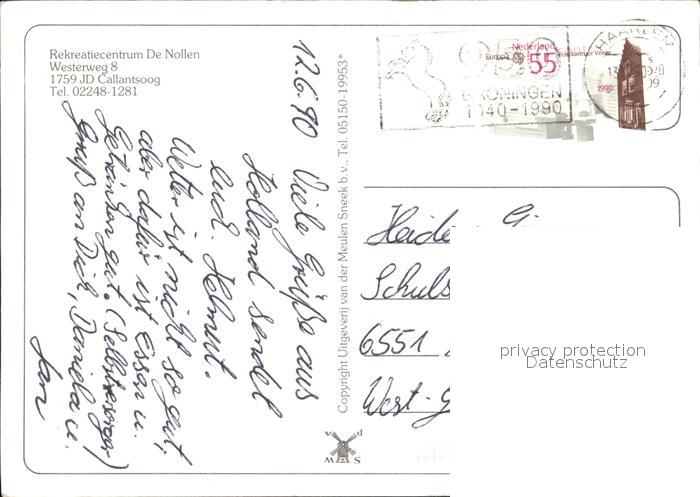 Rekreatiecentrum De Nollen
Westerweg 8
1759 JD Callantsoog
Tel. 02248-1281
12.6.90 Viele Grüße aus
Holland sendet
Euch Helmut.
Wetter ist nicht so gut,
aber dafür ist Essen u.
Getränke gut. (Selbstversorger)
Gruß an Dich, Daniela u.
Jan
Copyright Uitgeverij van der Meulen Sneek b.v., Tel. 05150-19953*
v d
M S
Nederland
Europa
55
Postkantoor Veere
1990
950
GRONINGEN
1040-1990
HAARLEM
Heide
Schuls
6551
West-G
privacy protection
Datenschutz